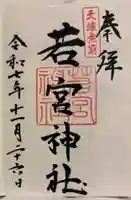 奉拝
天壌無窮
若宮神社
令和七年十一月二十六日